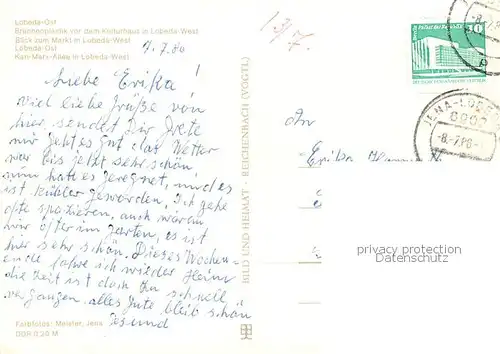 Lobeda-Ost
Brunnenplastik vor dem Kulturhaus in Lobeda-West
Blick zum Markt in Lobeda-West
Lobeda-Ost
Karl-Marx-Allee in Lobeda-West
7.7.80
Liebe Erika!
viel liebe Grüße von
hier sendet Dir Grete
mir geht es gut das Wetter
war bis jetzt sehr schön
nun hat es geregnet, und es
ist kühler geworden, Ich gehe
ofte spazieren, auch waren
wir öfter im Garten, es ist
hier sehr schön. Dieses Wochen
ende fahre ich wieder Heim
die Zeit ist dan zu schnell
vergangen. alles Gute bleib schön
Gesund
Farbfotos: Meister, Jena
DDR 0,20 M
BILD UND HEIMAT · REICHENBACH (VOGTL)
An
Erika
10
JENA-LOBEDA
-8.-7.80-
privacy protection